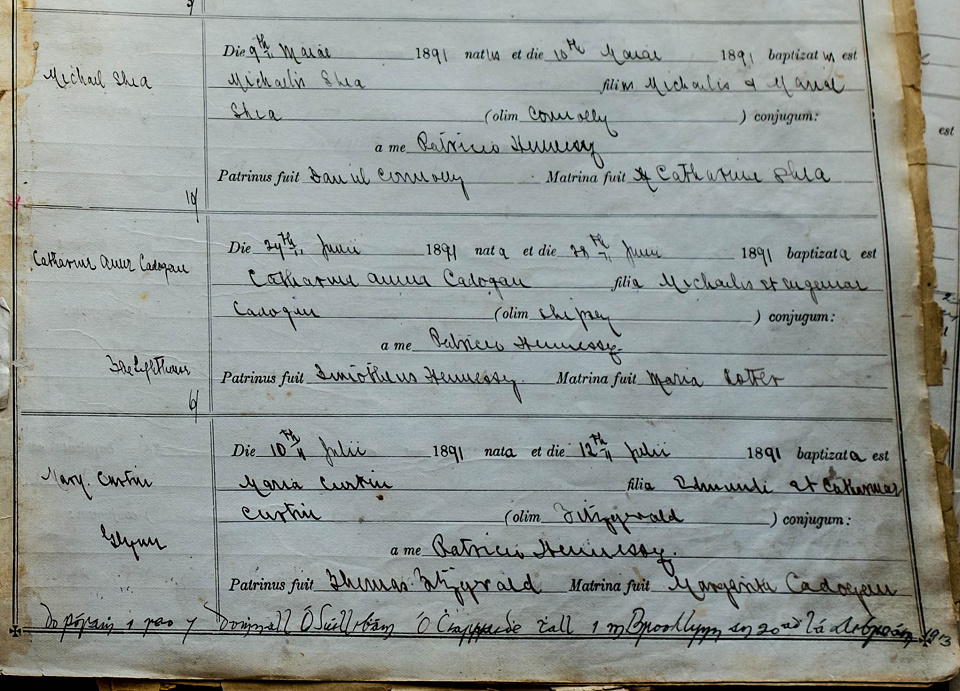 Die 9th Maii 1891 natus et die 10th Maii 1891 baptizatus est
Michael Shea
Michaelis Shea filius Michaelis & Maria
Shea (olim Connolly ) conjugum:
a me Patricio Hennessy
Patrinus fuit Daniel Connolly Matrina fuit Catharine Shea
Die 27th Junii 1891 nata et die 28th Junii 1891 baptizata est
Catharine Anna Cadogan
Catharine Anna Cadogan filia Michaelis et Eugeniae
Cadogan (olim Shipsey ) conjugum:
a me Patricio Hennessy
Patrinus fuit Timotheus Hennessy Matrina fuit Maria Cotter
Die 10th Julii 1891 nata et die 12th Julii 1891 baptizata est
Mary. Curtin
Maria Curtin filia Edmundi et Catharinae
Curtin (olim Fitzgerald ) conjugum:
Glynn
a me Patricio Hennessy.
Patrinus fuit Thomas Fitzgerald Matrina fuit Margarita Cadogan
Do pósadh Domnall Ó Súilleabháin tall i mBrooklyn an 20ad lá 1913